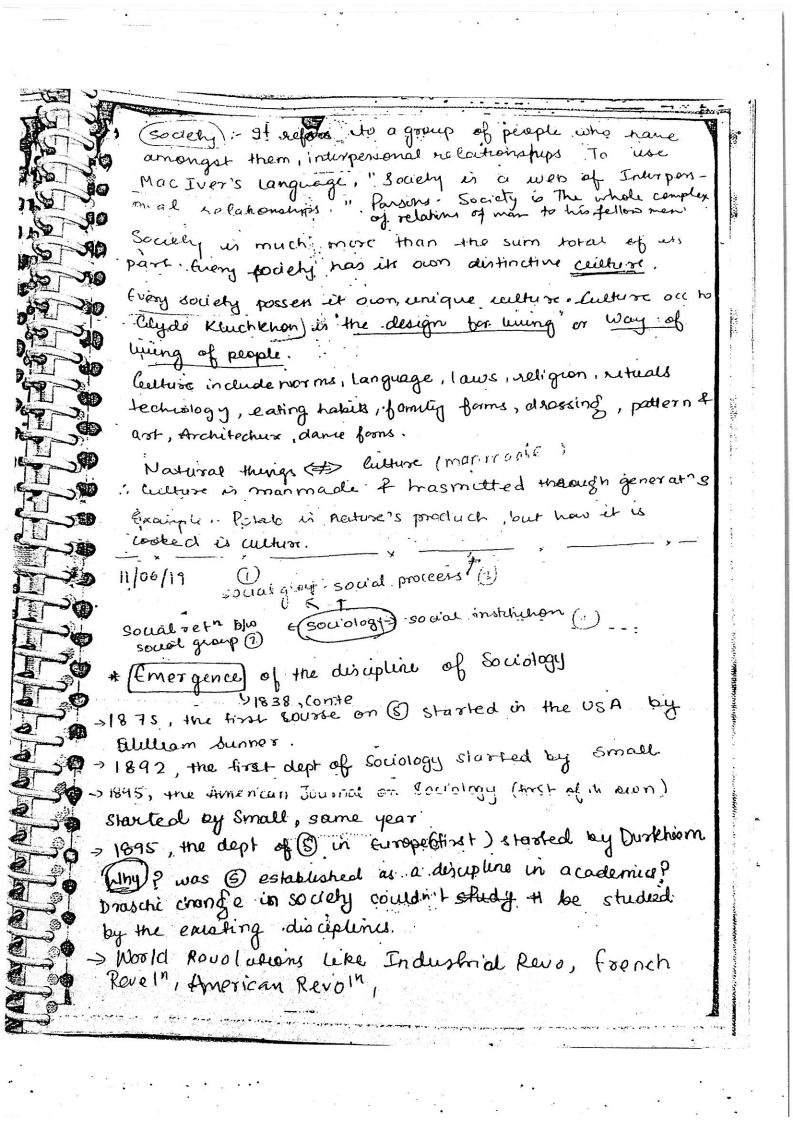 Society :- It refers to a group of people who have
amongst them, interpersonal relationships To use
MacIver's Language, "Society is a web of Interperso-
nal relationships." Parsons - Society is The whole complex
of relations of man to his fellow men
Society is much more than the sum total of its
part. Every society has its own distinctive culture.
Every society posses it own, unique culture. Culture acc to
Clyde Kluchkhon) is "the design for living" or Way of
living of people.
Culture include norms, language, laws, religion, rituals
technology, eating habits, family forms, dressing, pattern &
art, Architechure, dance forms.
Natural things <≠> Culture (manmade)
∴ Culture is manmade & trasmitted through generatns
Example.. Potato is nature's product, but how it is
cooked is culture.
11/06/19 ①
social group social process
Social retn b/w
social group ②
sociology
social institution
* Emergence of the discipline of Sociology
↳ 1838, Comte
→ 1875, the first course on Ⓢ started in the USA by
William Sumner.
→ 1892, the first dept of Sociology started by Small
→ 1895, the American Journal on Sociology (first of its own)
started by Small, same year
→ 1895, the dept of Ⓢ in Europe (first) started by Durkheim
Why? was Ⓢ established as a discipline in academics?
Draschi change in society couldn't study it be studied
by the existing disciplines.
→ World Revolutions like Industrial Revo, French
Reveln, American Revoln,